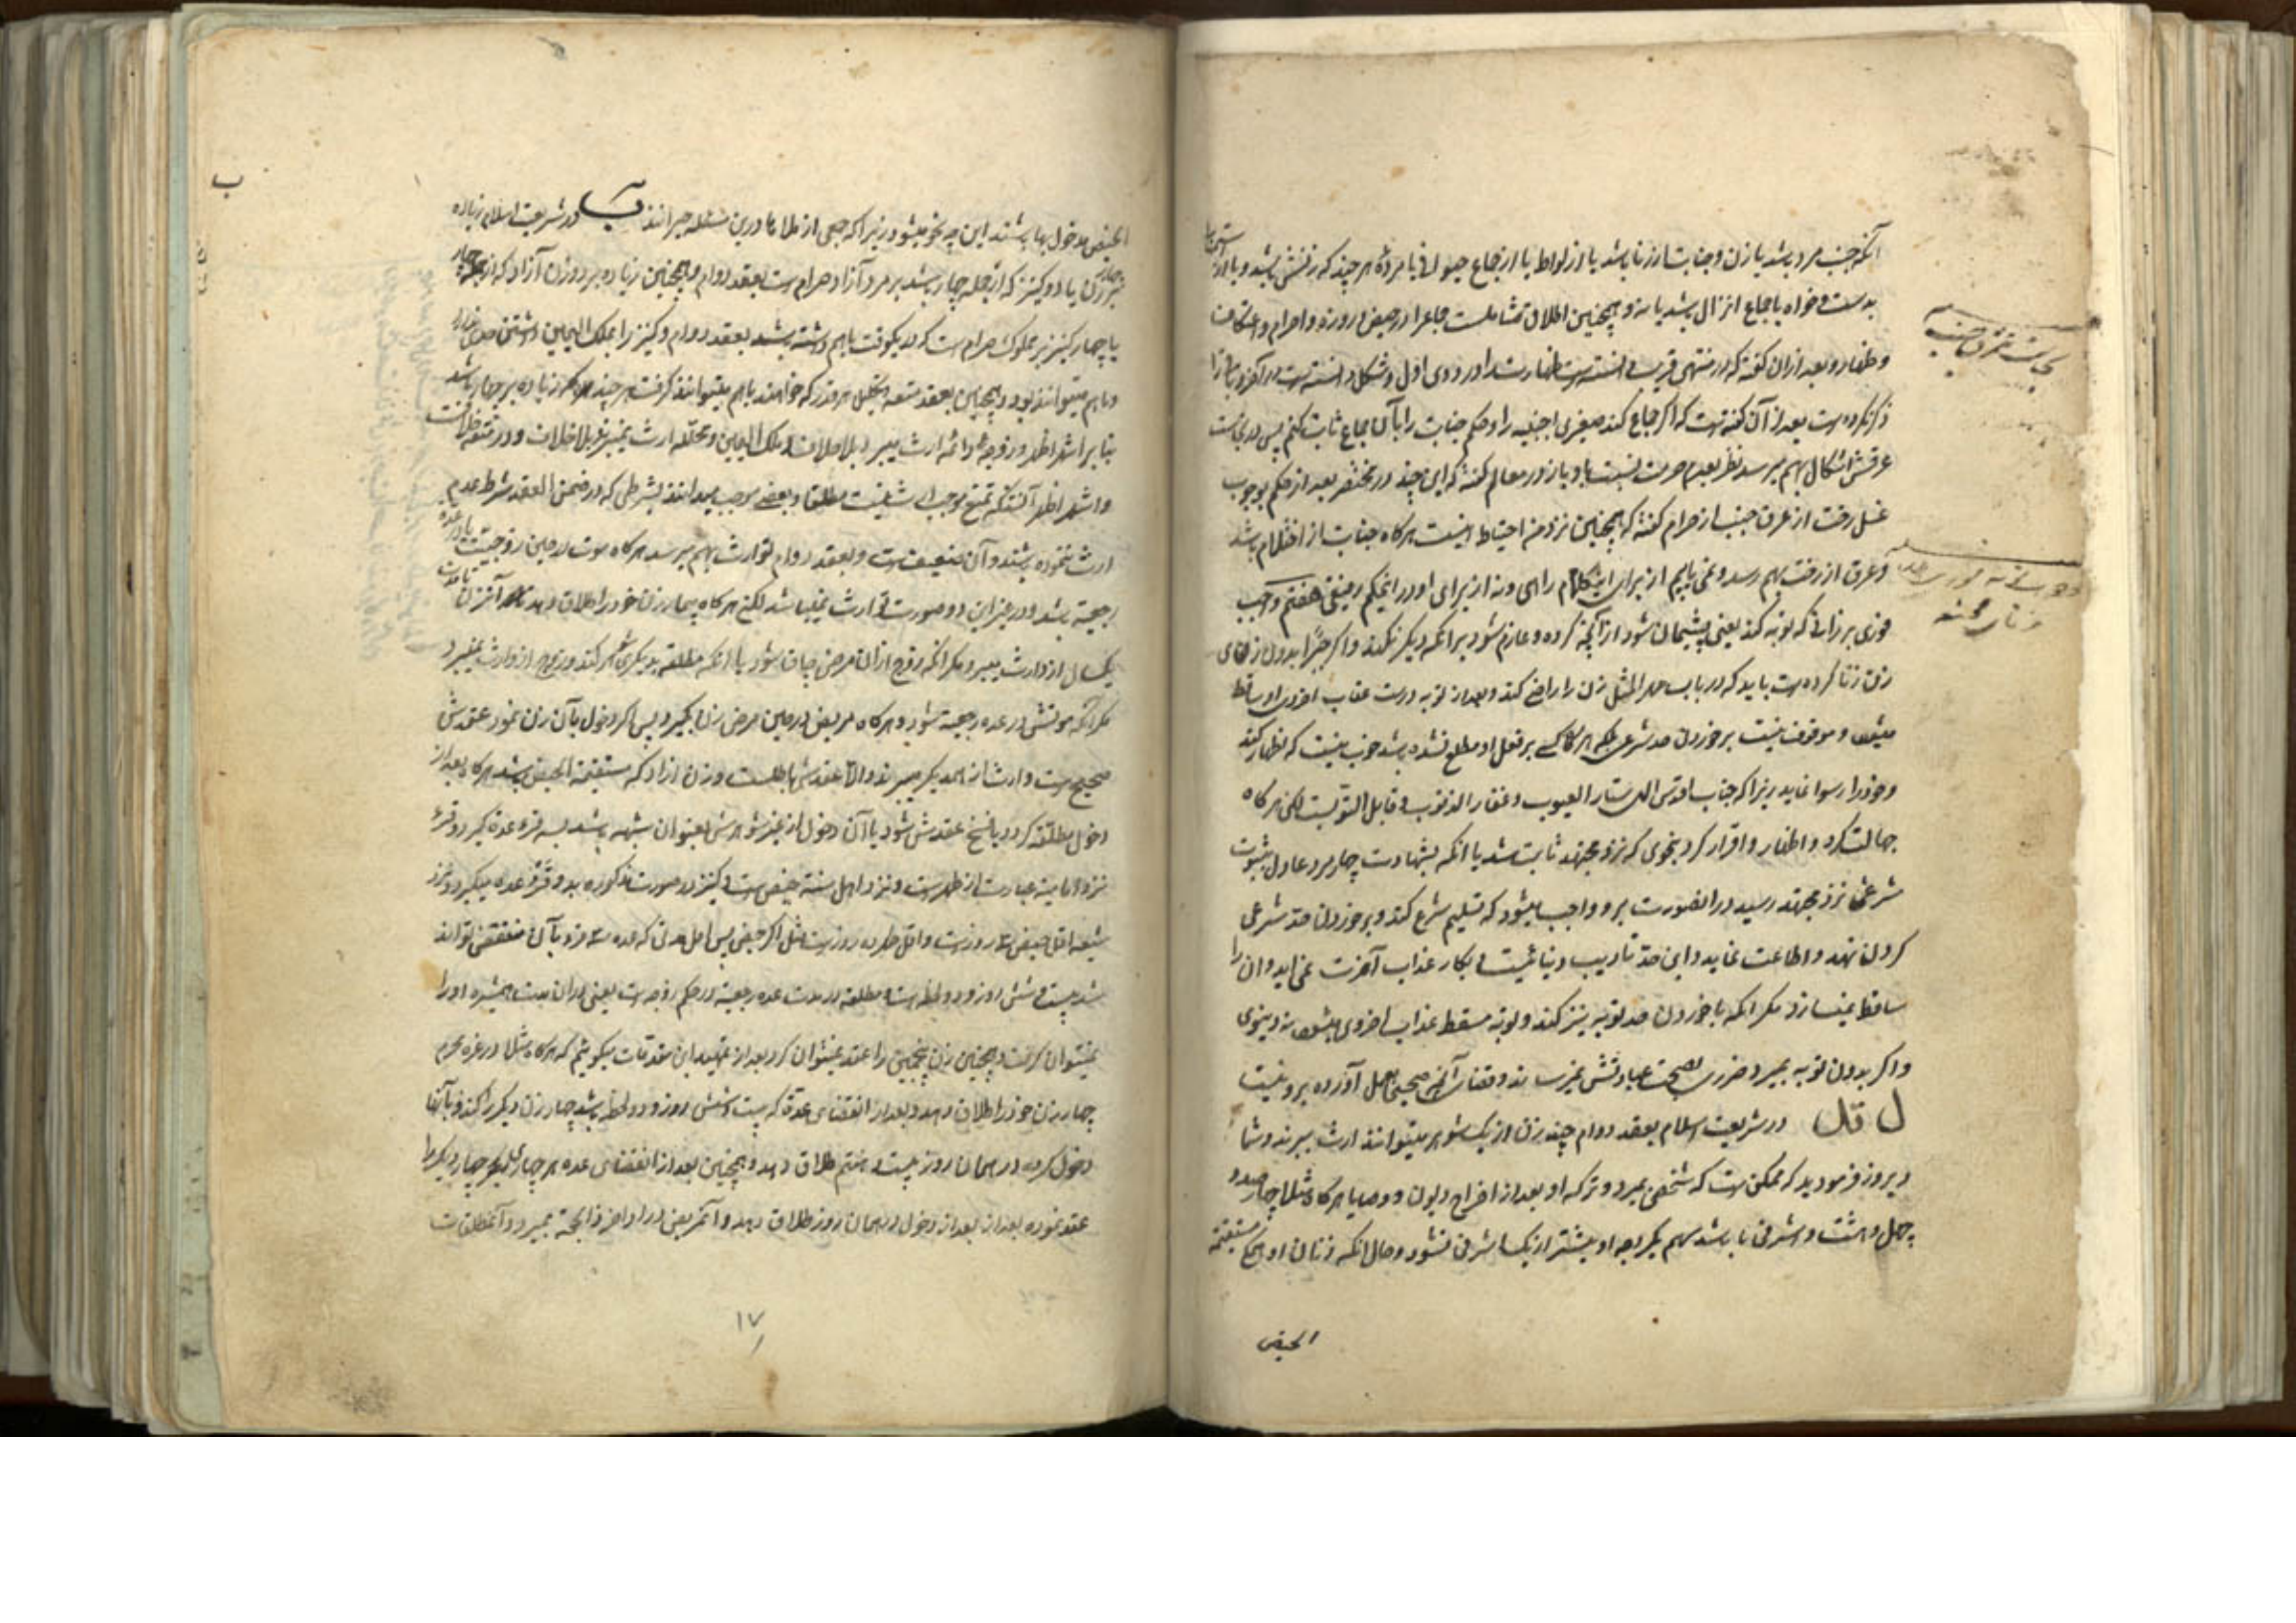 آنکه جنب مرد باشد یا زن و جنابت از زنا باشد یا از لواط یا از جماع حیوانی یا مرده هر چند که زنش باشد و یا از
بدست و خواه با جماع انزال باشد یا نه و همچنین اطلاق شاملست جماع را در حیض و روزه و احرام و اعتکاف
و ظهار و بعد از آن گفته که در منتهی قریب دانسته است طهارت را در دوی اول و مشکل دانسته است در آخر
ذکر نکرده است بعد از آن گفته است که اگر جماع کند صغیری اجنبیه را و حکم جنابت را با آن جماع ثابت کنیم پس در نجاست
عرقش اشکال بهم میرسد نظر بعدم حرمت نسبت باو و باز در معالم گفته که این جنید در مختصر بعد از حکم بوجوب
غسل رخت از عرق جنب از حرام گفته که همچنین نزد من احتیاط اینست هرگاه جنابت از احتلام باشد
و عرق از رخت بهم رسد و نمی یابیم از برای این کلام راهی و نه از برای او در این حکم رفیقی هفتم واجب
فوری بر زانی که توبه کند یعنی پشیمان شود از آنچه کرده و عازم شود بر آنکه دیگر نکند و اگر جبرا بدون رضای
زن زنا کرده است باید که در باب مهر المثل زن را راضی کند و بعد از توبه درست عقاب اخروی او ساقط
میشود و موقوف نیست بر خوردن حد شرعی بلکه هرگاه کسی بر فعل او مطلع نشده باشد خوب نیست که اظهار کند
و خود را رسوا نماید زیرا که جناب اقدس الهی ستار العیوب و غفار الذنوب و قابل التوبست لکن هرگاه
جهالت کرد و اظهار و اقرار کرد بنحوی که نزد مجتهد ثابت شد یا آنکه بشهادت چهار مرد عادل بثبوت
شرعی نزد مجتهد رسید در این صورت برو واجب میشود که تسلیم شرع کند و بر خوردن حد شرعی
گردن نهد و اطاعت نماید و این حد تادیب دنیائیست و بکار عذاب آخرت نمی آید و آن را
ساقط نمیسازد مگر آنکه با خوردن حد توبه نیز کند و توبه مسقط عذاب اخروی میشود نه دنیوی
و اگر بدون توبه بمیرد ضرری بصحت عباداتش نمیرساند و قضای آنچه صحیح بعمل آورده برو نیست
ل قل در شریعت اسلام بعقد دوام چند زن از یک شوهر میتوانند ارث ببرند و شما
دیروز فرمودید که ممکن است که شخصی بمیرد و ترکه او بعد از اخراج دیون و وصایا هرگاه مثلا چهار صد و
چهل و هشت اشرفی باشد سهم یک زوجه او بیشتر از یک اشرفی نشود و حال آنکه زنان او همگی مستقیمة
الحیض
نجاست عرق جنب
ب
الحیض مدخول بها باشند این چه نحو میشود زیرا که جمعی از ملاها درین مسئله حیرانند در شریعت اسلام زیاده
بر چهار زن یا دو کنیز که از جمله چهار باشد بر مرد آزاد حرام است بعقد دوام و همچنین زیاده بر دو زن آزاد که از جمله چهار
یا چهار کنیز بر مملوک حرام است که در یکوقت باهم داشته باشد بعقد دوام و کنیز را بملک الیمین داشتن حدی ندارد
و باهم میتوانند بود و همچنین بعقد متعه و تحلیل هر قدر که خواهند باهم میتوانند گرفت هر چند که زیاده بر چهار باشد
بنا بر اشهر اظهر و زوجه دائمه ارث میبرد بلا خلاف و ملک الیمین و محلله ارث نمیبرند بلا خلاف و در متعه خلافست
و اشهر اظهر آنست که تمتع موجب ارث نیست مطلقا و بعضی موجب میدانند بشرطی که در ضمن العقد شرط عدم
ارث ننموده باشند و آن ضعیف است و بعقد دوام توارث بهم میرسد هرگاه موت در حین زوجیت یا در عده
رجعیه باشد و در غیر این دو صورت توارث نمیباشد لکن هرگاه بیمار زن خود را طلاق دهد آن زن تا مدت
یکسال از او ارث میبرد مگر آنکه زوج از آن مرض چاق شود یا آنکه مطلقه بدیگری شوهر کند و زوج از او ارث نمیبرد
مگر آنکه موتش در عده رجعیه شود و هرگاه مریض در حین مرض زن بگیرد پس اگر دخول بآن زن نمود عقدش
صحیح است و ارث از همدیگر میبرند و الا عقدش باطلست و زن آزاد که مستقیمة الحیض باشد هرگاه بعد از
دخول مطلقه گردد یا فسخ عقدش شود یا آن دخول از غیر شوهرش بعنوان شبهه باشد بسه قرء عده گیرد و قرء
نزد امامیه عبارت از طهر است و نزد اهل سنه حیض است و کنیز در صورت مذکوره بدو قرء عده میگیرد و نزد
شیعه اقل حیض سه روز است و اقل طهر ده روز است مثل اکثر حیض پس اقل مدتی که عده سه قرء بآن منقضی تواند
شد بیست و شش روز و دو لحظه است و مطلقه در مدت عده رجعیه در حکم زوجه است یعنی در آن مدت همشیره او را
نمیتوان گرفت و همچنین زن پنجمین را عقد نمیتوان کرد بعد از تمهید این مقدمات میگوئیم که هرگاه مثلا در غره محرم
چهار زن خود را طلاق دهد و بعد از انقضای عده که بیست و شش روز و دو لحظه باشد چهار زن دیگر را کند و بآنها
دخول کرده در همان روز بیست و هفتم طلاق دهد و همچنین بعد از انقضای عده هر چهار دیگر چهار دیگر را
عقد نموده بعد از دخول در همان روز طلاق دهد و آخر یعنی در اواخر ذی الحجه بمیرد و آن مطلقات
۱۷